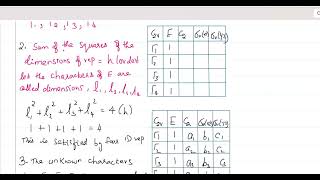 2. Sum of the squares of the
dimensions of rep = h (order)
let the characters of E are
called dimensions, l₁, l₂, l₃, l₄
l₁² + l₂² + l₃² + l₄² = 4 (h)
1 + 1 + 1 + 1 = 4
This is satisfied by four 1D rep
3. The unknown characters
C₂ᵥ E C₂
Γ₁ 1
Γ₂ 1
Γ₃ 1
Γ₄ 1
C₂ᵥ E C₂
Γ₁ 1 a₁ b₁ c₁
Γ₂ 1 a₂ b₂ c₂
Γ₃ 1 a₃ b₃ c₃